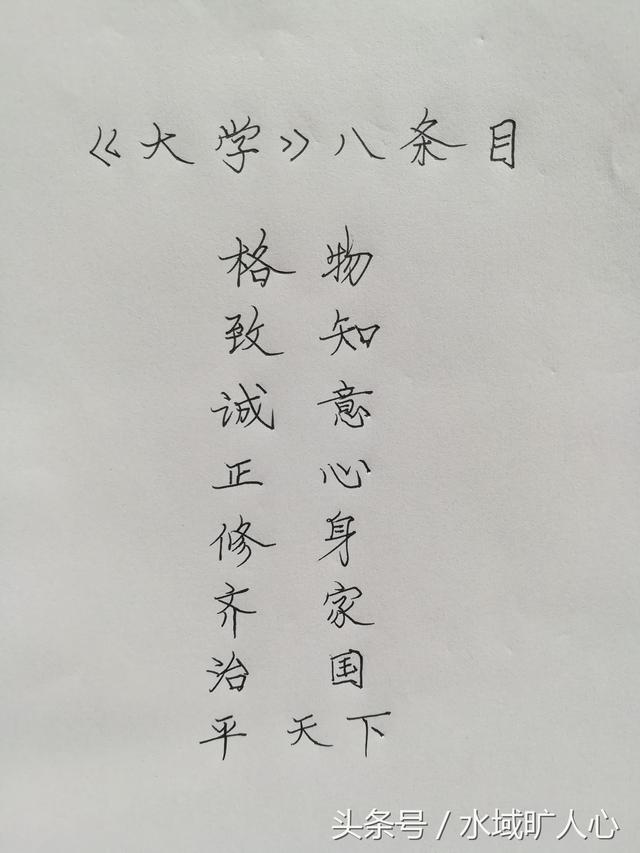 《大学》八条目
格 物
致 知
诚 意
正 心
修 身
齐 家
治 国
平 天 下
头条号 / 水域旷人心